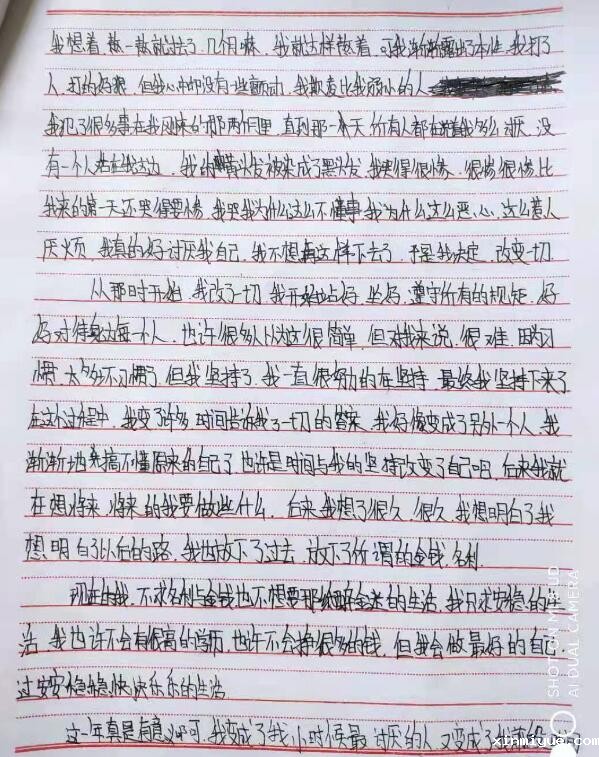 我想着,熬一熬就过去了,几个月嘛,我就这样熬着,可我渐渐露出了本性,我打了
人,打的好狠,但我心中却没有一些颤动,我欺负比我弱小的人
我犯了很多事在我刚来的那两个月里,直到那一天 所有人都在说着我多么讨厌,没
有一个人站在我这边,我的黄头发被染成了黑头发,我哭得很惨,很惨很惨,比
我来的第一天还哭得要惨,我哭我为什么这么不懂事,我为什么这么恶心,这么惹人
厌烦,我真的好讨厌我自己,我不想再这样下去了,于是我决定,改变一切.
从那时开始,我改了一切,我开始站好,坐好,遵守所有的规矩,好
好对待身边每一个人,也许很多人认为这很简单,但对我来说,很难,因为习
惯,太多不习惯了,但我坚持了,我一直很努力的在坚持,最终我坚持下来了
在这个过程中,我变了许多,时间告诉我了一切的答案,我好像变成了另外一个人,我
渐渐地搞不懂原来的自己了,也许是时间与我的坚持改变了自己吧,后来我就
在想将来,将来的我要做些什么,后来我想了很久,很久,我想明白了我
想明白了以后的路,我也放下了过去,放下了所谓的金钱,名利.
现在的我,不求名利与金钱也不想要那纸醉金迷的生活,我只求安稳的生
活,我也许不会有很高的学历,也许不会挣很多的钱,但我会做最好的自己,
过安安稳稳,快快乐乐的生活.
这一年真是有意义啊,可,我变成了我小时候最讨厌的人,又变成了
SHOT ON MI 8 UD
AI DUAL CAMERA
xinmiyue.com